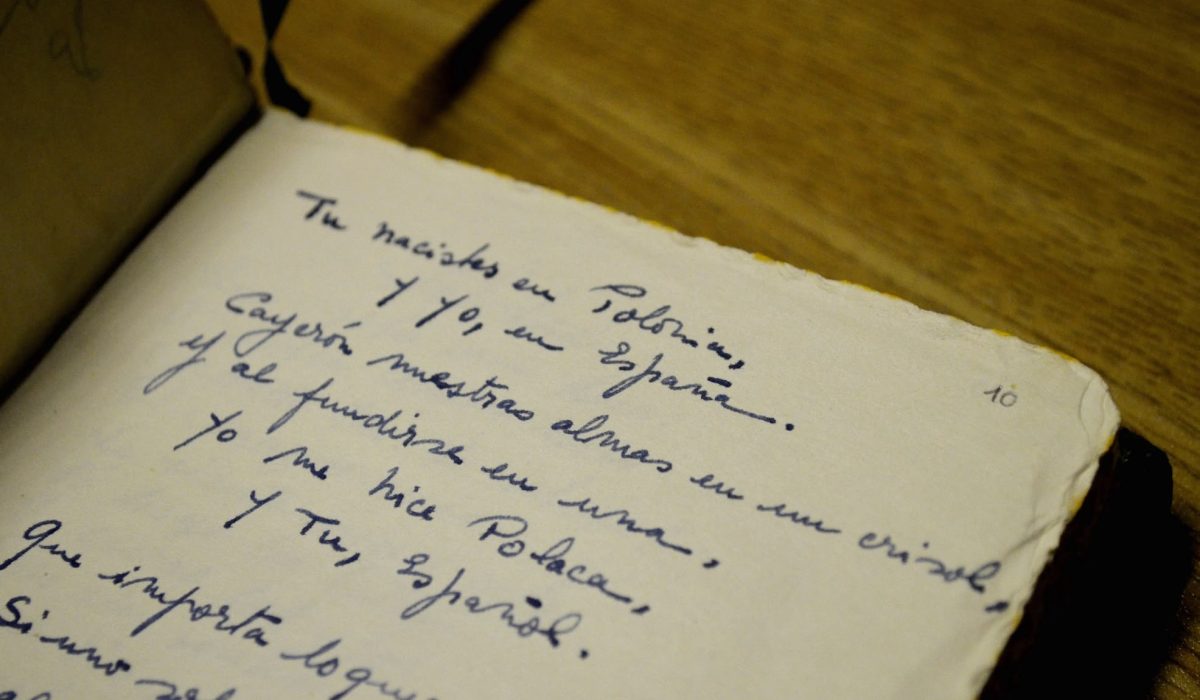 10
Tu nacistes en Polonia,
Y Yo, en España.
Cayerón nuestras almas en un crisol,
y al fundirse en una,
Yo me hice Polaca,
Y Tu, Español.
Que importa lo que
Si uno